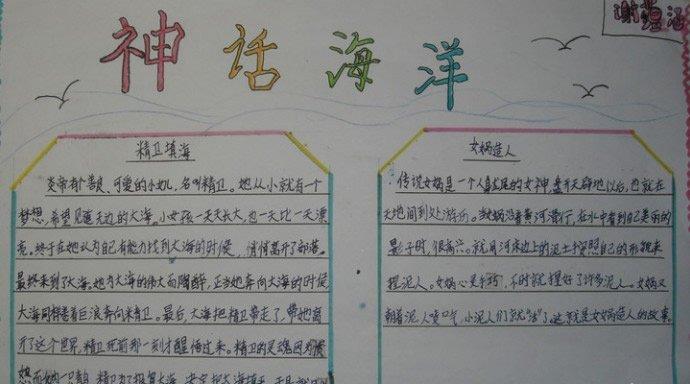 神话海洋
谢
精卫填海
炎帝有个善良、可爱的小女儿,名叫精卫。她从小就有一个
梦想,希望见无边的大海。小女孩一天天长大,也一天比一天漂
亮。终于在她认为自己有能力找到大海的时候,悄悄离开了部落。
最终来到了大海。她为大海的伟大而陶醉,正当她奔向大海的时候
大海同样卷着巨浪奔向精卫。最后,大海把精卫带走了,带她离
开了这个世界,精卫死前那一刻才醒悟过来。精卫的灵魂因为
女娲造人
传说女娲是一个人首龙尾的女神,盘古开天辟地以后,也就在
天地间到处游历。当她沿着黄河滑行,在水中看到自己美丽的
影子时,很高兴。就用河床边上的泥土按照自己的形貌来
捏泥人。女娲心灵手巧,不时就捏好了许多泥人。女娲又
朝着泥人喷口气,小泥人们就"活"了。这就是女娲造人的故事